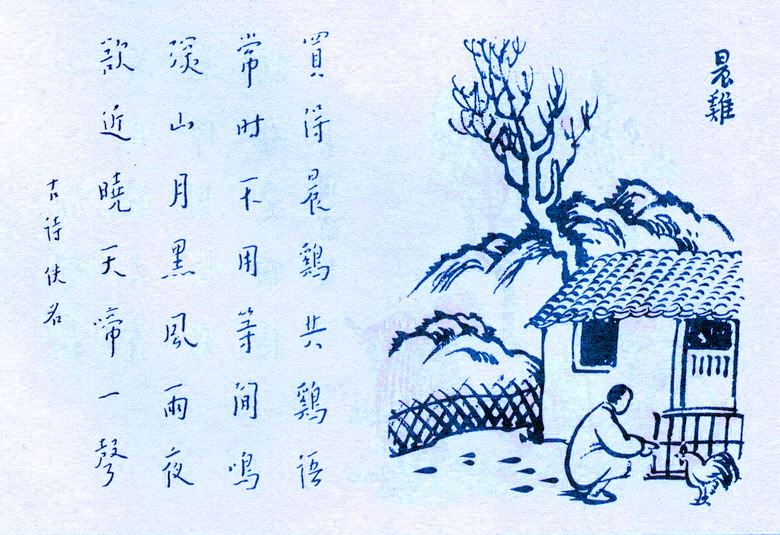 晨雞
買得晨鷄共鷄語
常时不用等閒鳴
深山月黑風雨夜
欲近曉天啼一聲
古诗佚名